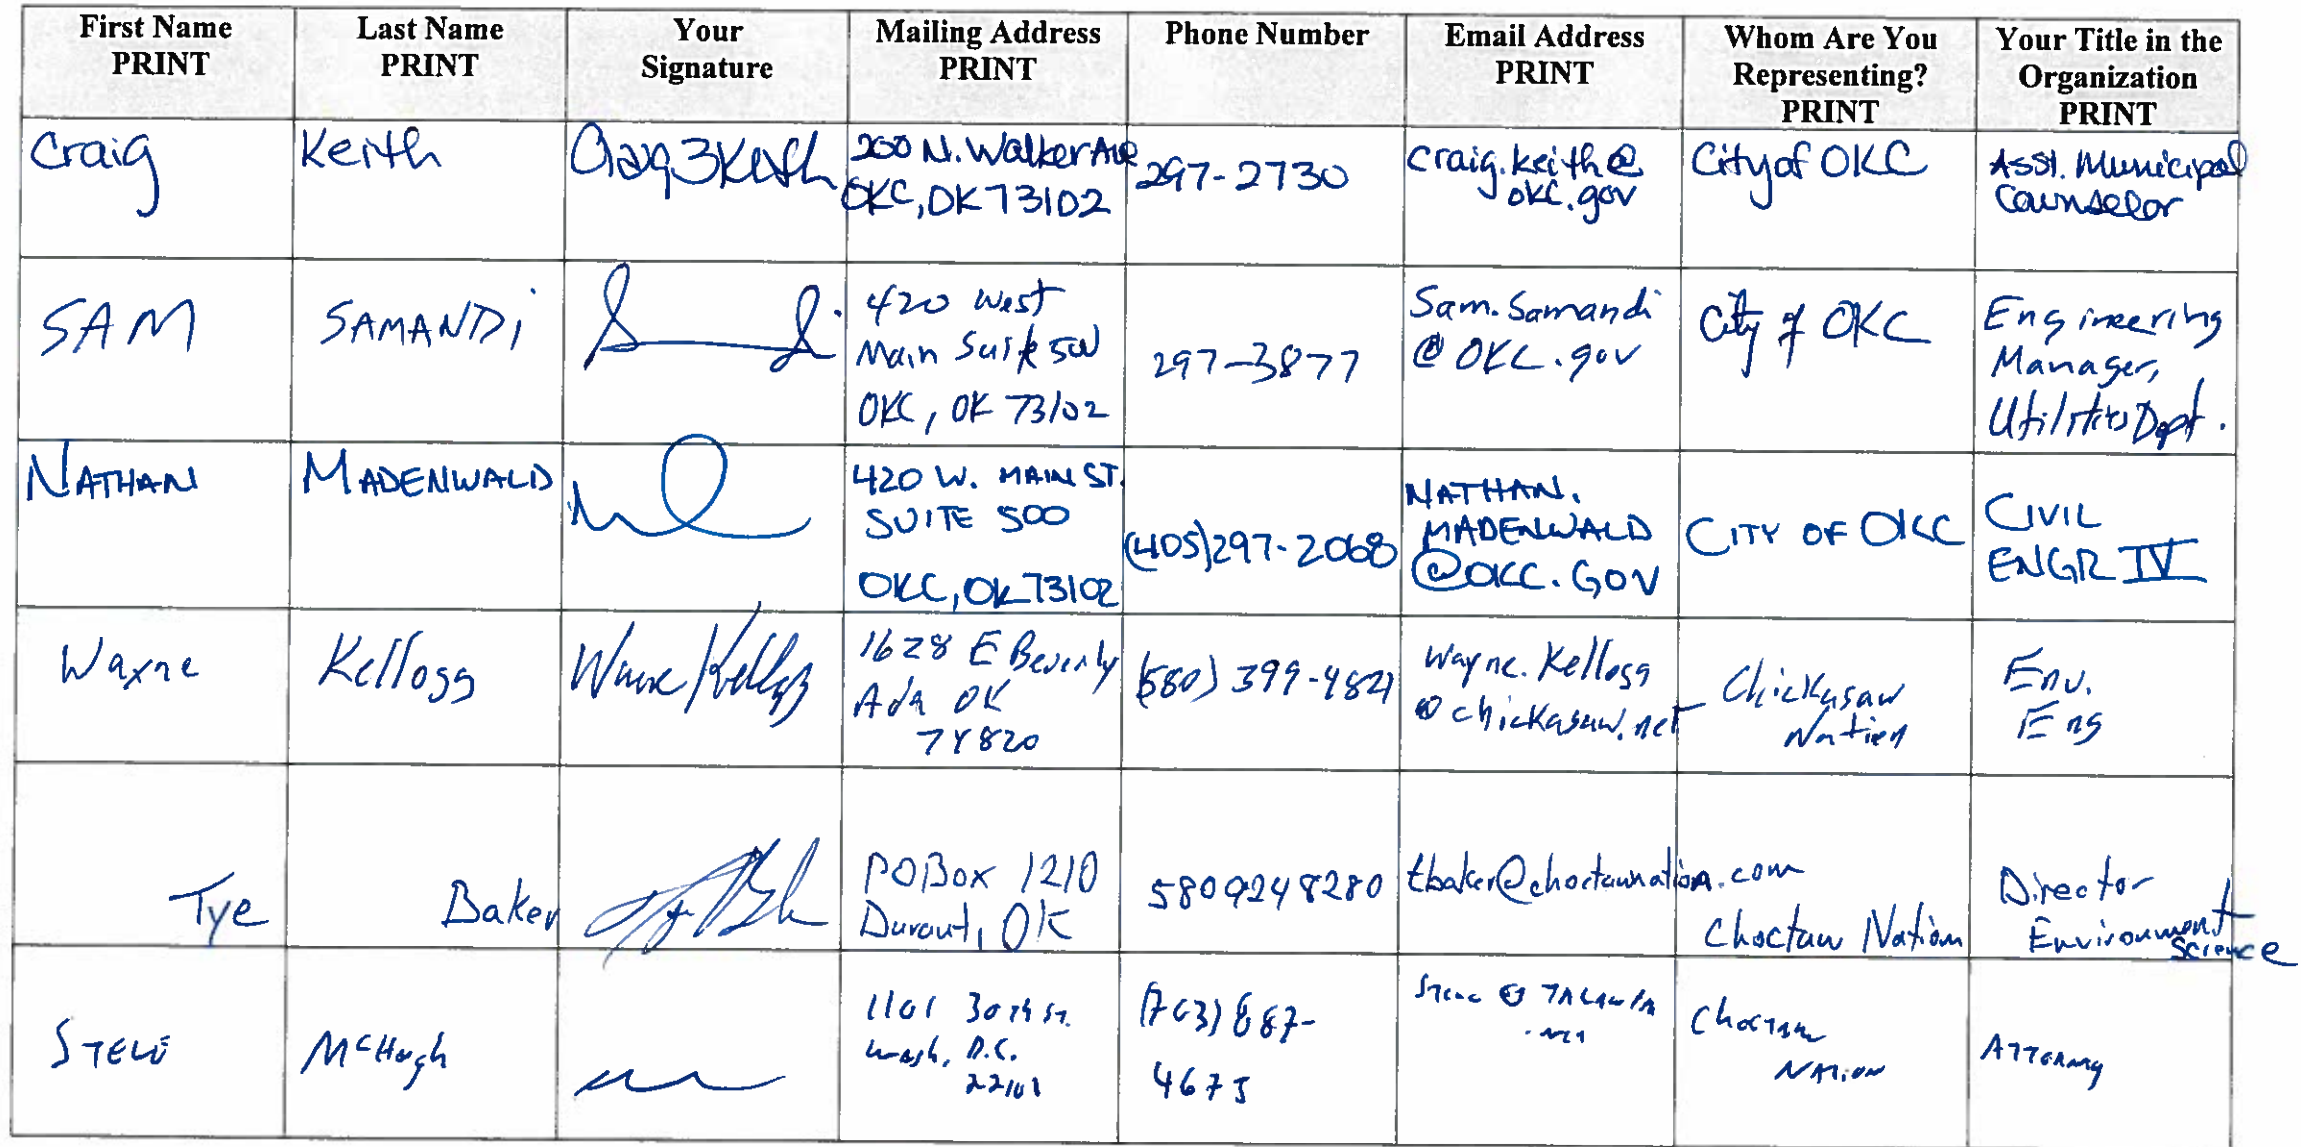 First Name PRINT
Last Name PRINT
Your Signature
Mailing Address PRINT
Phone Number
Email Address PRINT
Whom Are You Representing? PRINT
Your Title in the Organization PRINT
Craig
Keith
Craig B Keith
200 N. Walker Ave
OKC, OK 73102
297-2730
craig.keith@
okc.gov
City of OKC
Asst. Municipal
Counselor
SAM
SAMANDi
420 West
Main Suite 500
OKC, OK 73102
297-3877
Sam.Samandi
@OKC.gov
City of OKC
Engineering
Manager,
Utilities Dept.
NATHAN
MADENWALD
420 W. MAIN ST.
SUITE 500
OKC, OK 73102
(405)297-2068
NATHAN.
MADENWALD
@OKC.GOV
CITY OF OKC
CIVIL
ENGR IV
Wayne
Kellogg
Wayne Kellogg
1628 E Beverly
Ada OK
74820
(580) 399-4821
Wayne.Kellogg
@chickasaw.net
Chickasaw
Nation
Env.
Eng
Tye
Baker
PO Box 1210
Durant, OK
5809248280
tbaker@choctawnation.com
Choctaw Nation
Director
Environment
Science
STEVE
McHugh
1101 30th St.
Wash, D.C.
(703)
4673
Choctaw
Nation
Attorney